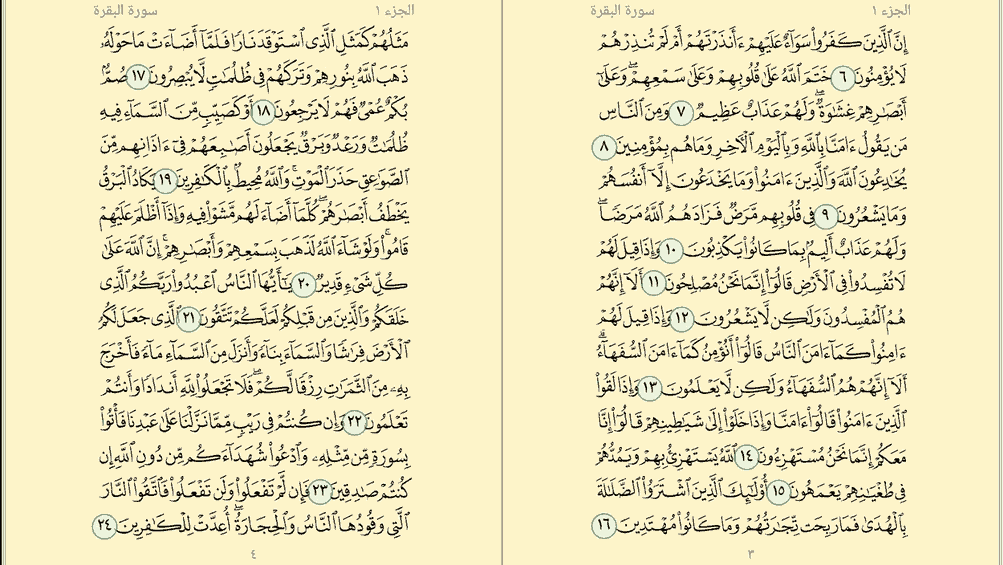 الجزء ١
سورة البقرة
إِنَّ ٱلَّذِينَ كَفَرُوا۟ سَوَآءٌ عَلَيْهِمْ ءَأَنذَرْتَهُمْ أَمْ لَمْ تُنذِرْهُمْ
لَا يُؤْمِنُونَ ٦ خَتَمَ ٱللَّهُ عَلَىٰ قُلُوبِهِمْ وَعَلَىٰ سَمْعِهِمْ ۖ وَعَلَىٰٓ
أَبْصَـٰرِهِمْ غِشَـٰوَةٌ ۖ وَلَهُمْ عَذَابٌ عَظِيمٌ ٧ وَمِنَ ٱلنَّاسِ
مَن يَقُولُ ءَامَنَّا بِٱللَّهِ وَبِٱلْيَوْمِ ٱلْـَٔاخِرِ وَمَا هُم بِمُؤْمِنِينَ ٨
يُخَـٰدِعُونَ ٱللَّهَ وَٱلَّذِينَ ءَامَنُوا۟ وَمَا يَخْدَعُونَ إِلَّآ أَنفُسَهُمْ
وَمَا يَشْعُرُونَ ٩ فِى قُلُوبِهِم مَّرَضٌ فَزَادَهُمُ ٱللَّهُ مَرَضًا ۖ
وَلَهُمْ عَذَابٌ أَلِيمٌۢ بِمَا كَانُوا۟ يَكْذِبُونَ ١٠ وَإِذَا قِيلَ لَهُمْ
لَا تُفْسِدُوا۟ فِى ٱلْأَرْضِ قَالُوٓا۟ إِنَّمَا نَحْنُ مُصْلِحُونَ ١١ أَلَآ إِنَّهُمْ
هُمُ ٱلْمُفْسِدُونَ وَلَـٰكِن لَّا يَشْعُرُونَ ١٢ وَإِذَا قِيلَ لَهُمْ
ءَامِنُوا۟ كَمَآ ءَامَنَ ٱلنَّاسُ قَالُوٓا۟ أَنُؤْمِنُ كَمَآ ءَامَنَ ٱلسُّفَهَآءُ ۗ
أَلَآ إِنَّهُمْ هُمُ ٱلسُّفَهَآءُ وَلَـٰكِن لَّا يَعْلَمُونَ ١٣ وَإِذَا لَقُوا۟
ٱلَّذِينَ ءَامَنُوا۟ قَالُوٓا۟ ءَامَنَّا وَإِذَا خَلَوْا۟ إِلَىٰ شَيَـٰطِينِهِمْ قَالُوٓا۟ إِنَّا
مَعَكُمْ إِنَّمَا نَحْنُ مُسْتَهْزِءُونَ ١٤ ٱللَّهُ يَسْتَهْزِئُ بِهِمْ وَيَمُدُّهُمْ
فِى طُغْيَـٰنِهِمْ يَعْمَهُونَ ١٥ أُو۟لَـٰٓئِكَ ٱلَّذِينَ ٱشْتَرَوُا۟ ٱلضَّلَـٰلَةَ
بِٱلْهُدَىٰ فَمَا رَبِحَت تِّجَـٰرَتُهُمْ وَمَا كَانُوا۟ مُهْتَدِينَ ١٦
٣
الجزء ١
سورة البقرة
مَثَلُهُمْ كَمَثَلِ ٱلَّذِى ٱسْتَوْقَدَ نَارًا فَلَمَّآ أَضَآءَتْ مَا حَوْلَهُۥ
ذَهَبَ ٱللَّهُ بِنُورِهِمْ وَتَرَكَهُمْ فِى ظُلُمَـٰتٍ لَّا يُبْصِرُونَ ١٧ صُمٌّۢ
بُكْمٌ عُمْىٌ فَهُمْ لَا يَرْجِعُونَ ١٨ أَوْ كَصَيِّبٍ مِّنَ ٱلسَّمَآءِ فِيهِ
ظُلُمَـٰتٌ وَرَعْدٌ وَبَرْقٌ يَجْعَلُونَ أَصَـٰبِعَهُمْ فِىٓ ءَاذَانِهِم مِّنَ
ٱلصَّوَٰعِقِ حَذَرَ ٱلْمَوْتِ ۚ وَٱللَّهُ مُحِيطٌۢ بِٱلْكَـٰفِرِينَ ١٩ يَكَادُ ٱلْبَرْقُ
يَخْطَفُ أَبْصَـٰرَهُمْ ۖ كُلَّمَآ أَضَآءَ لَهُم مَّشَوْا۟ فِيهِ وَإِذَآ أَظْلَمَ عَلَيْهِمْ
قَامُوا۟ ۚ وَلَوْ شَآءَ ٱللَّهُ لَذَهَبَ بِسَمْعِهِمْ وَأَبْصَـٰرِهِمْ ۚ إِنَّ ٱللَّهَ عَلَىٰ
كُلِّ شَىْءٍ قَدِيرٌ ٢٠ يَـٰٓأَيُّهَا ٱلنَّاسُ ٱعْبُدُوا۟ رَبَّكُمُ ٱلَّذِى
خَلَقَكُمْ وَٱلَّذِينَ مِن قَبْلِكُمْ لَعَلَّكُمْ تَتَّقُونَ ٢١ ٱلَّذِى جَعَلَ لَكُمُ
ٱلْأَرْضَ فِرَٰشًا وَٱلسَّمَآءَ بِنَآءً وَأَنزَلَ مِنَ ٱلسَّمَآءِ مَآءً فَأَخْرَجَ
بِهِۦ مِنَ ٱلثَّمَرَٰتِ رِزْقًا لَّكُمْ ۖ فَلَا تَجْعَلُوا۟ لِلَّهِ أَندَادًا وَأَنتُمْ
تَعْلَمُونَ ٢٢ وَإِن كُنتُمْ فِى رَيْبٍ مِّمَّا نَزَّلْنَا عَلَىٰ عَبْدِنَا فَأْتُوا۟
بِسُورَةٍ مِّن مِّثْلِهِۦ وَٱدْعُوا۟ شُهَدَآءَكُم مِّن دُونِ ٱللَّهِ إِن
كُنتُمْ صَـٰدِقِينَ ٢٣ فَإِن لَّمْ تَفْعَلُوا۟ وَلَن تَفْعَلُوا۟ فَٱتَّقُوا۟ ٱلنَّارَ
ٱلَّتِى وَقُودُهَا ٱلنَّاسُ وَٱلْحِجَارَةُ ۖ أُعِدَّتْ لِلْكَـٰفِرِينَ ٢٤
٤